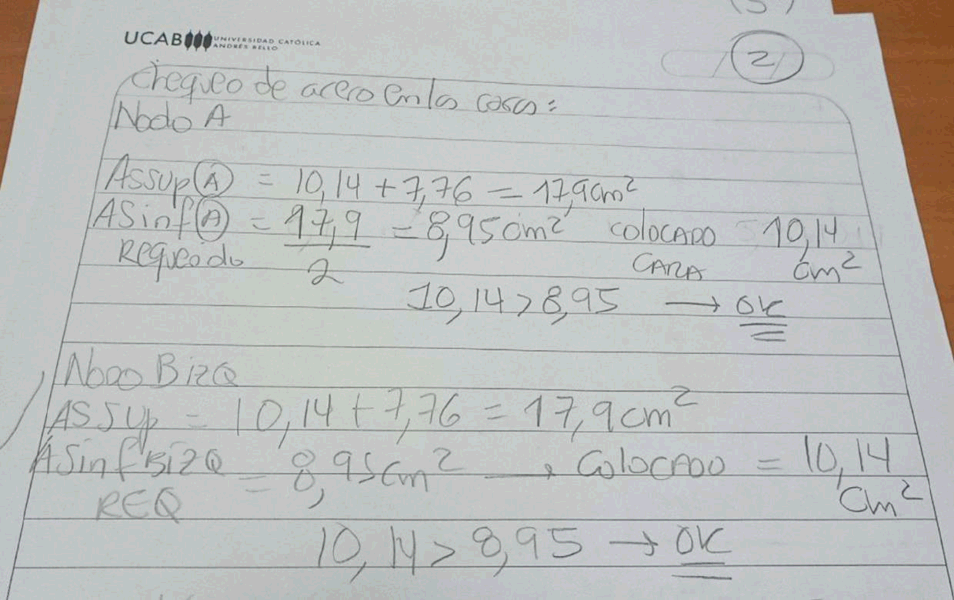 (5)
UCAB UNIVERSIDAD CATÓLICA
ANDRÉS BELLO
2
Chequeo de acero en las caras:
Nodo A
Assup(A) = 10,14 + 7,76 = 17,9cm²
ASinf(A) = 17,9/2 = 8,95cm² COLOCADO 10,14
Requerido CARA cm²
10,14 > 8,95 → OK
Nodo BIZQ
ASSUp = 10,14 + 7,76 = 17,9cm²
ASinf BIZQ = 8,95cm² → COLOCADO = 10,14
REQ cm²
10,14 > 8,95 → OK